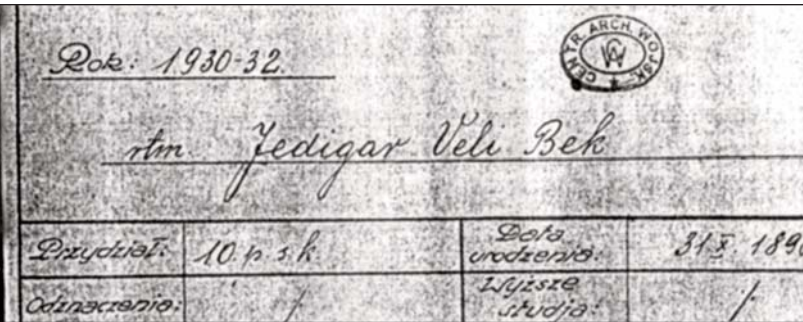 Rok: 1930-32.
CENTR. ARCH. WOJSK.
rtm. Jedigar Veli Bek
Przydział: 10. p. s. k. Data urodzenia: 31 X. 189
Odznaczenia: / Wyższe studja: /